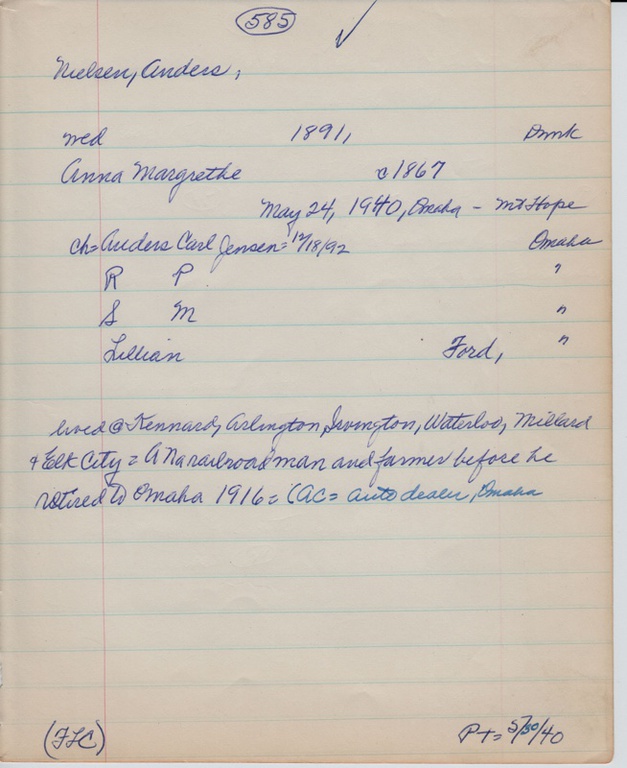 585 ✓
Nielsen, Anders,
wed 1891, Dmk
Anna Margrethe c1867
May 24, 1940, Omaha - Mt Hope
ch= Anders Carl Jensen= 12/18/92 Omaha
R P "
S M "
Lillian Ford, "
lived @ Kennard, Arlington, Irvington, Waterloo, Millard
+ Elk City = AN a railroad man and farmer before he
retired to Omaha 1916 = (AC = auto dealer, Omaha
(FLC) PT= 5/30/40